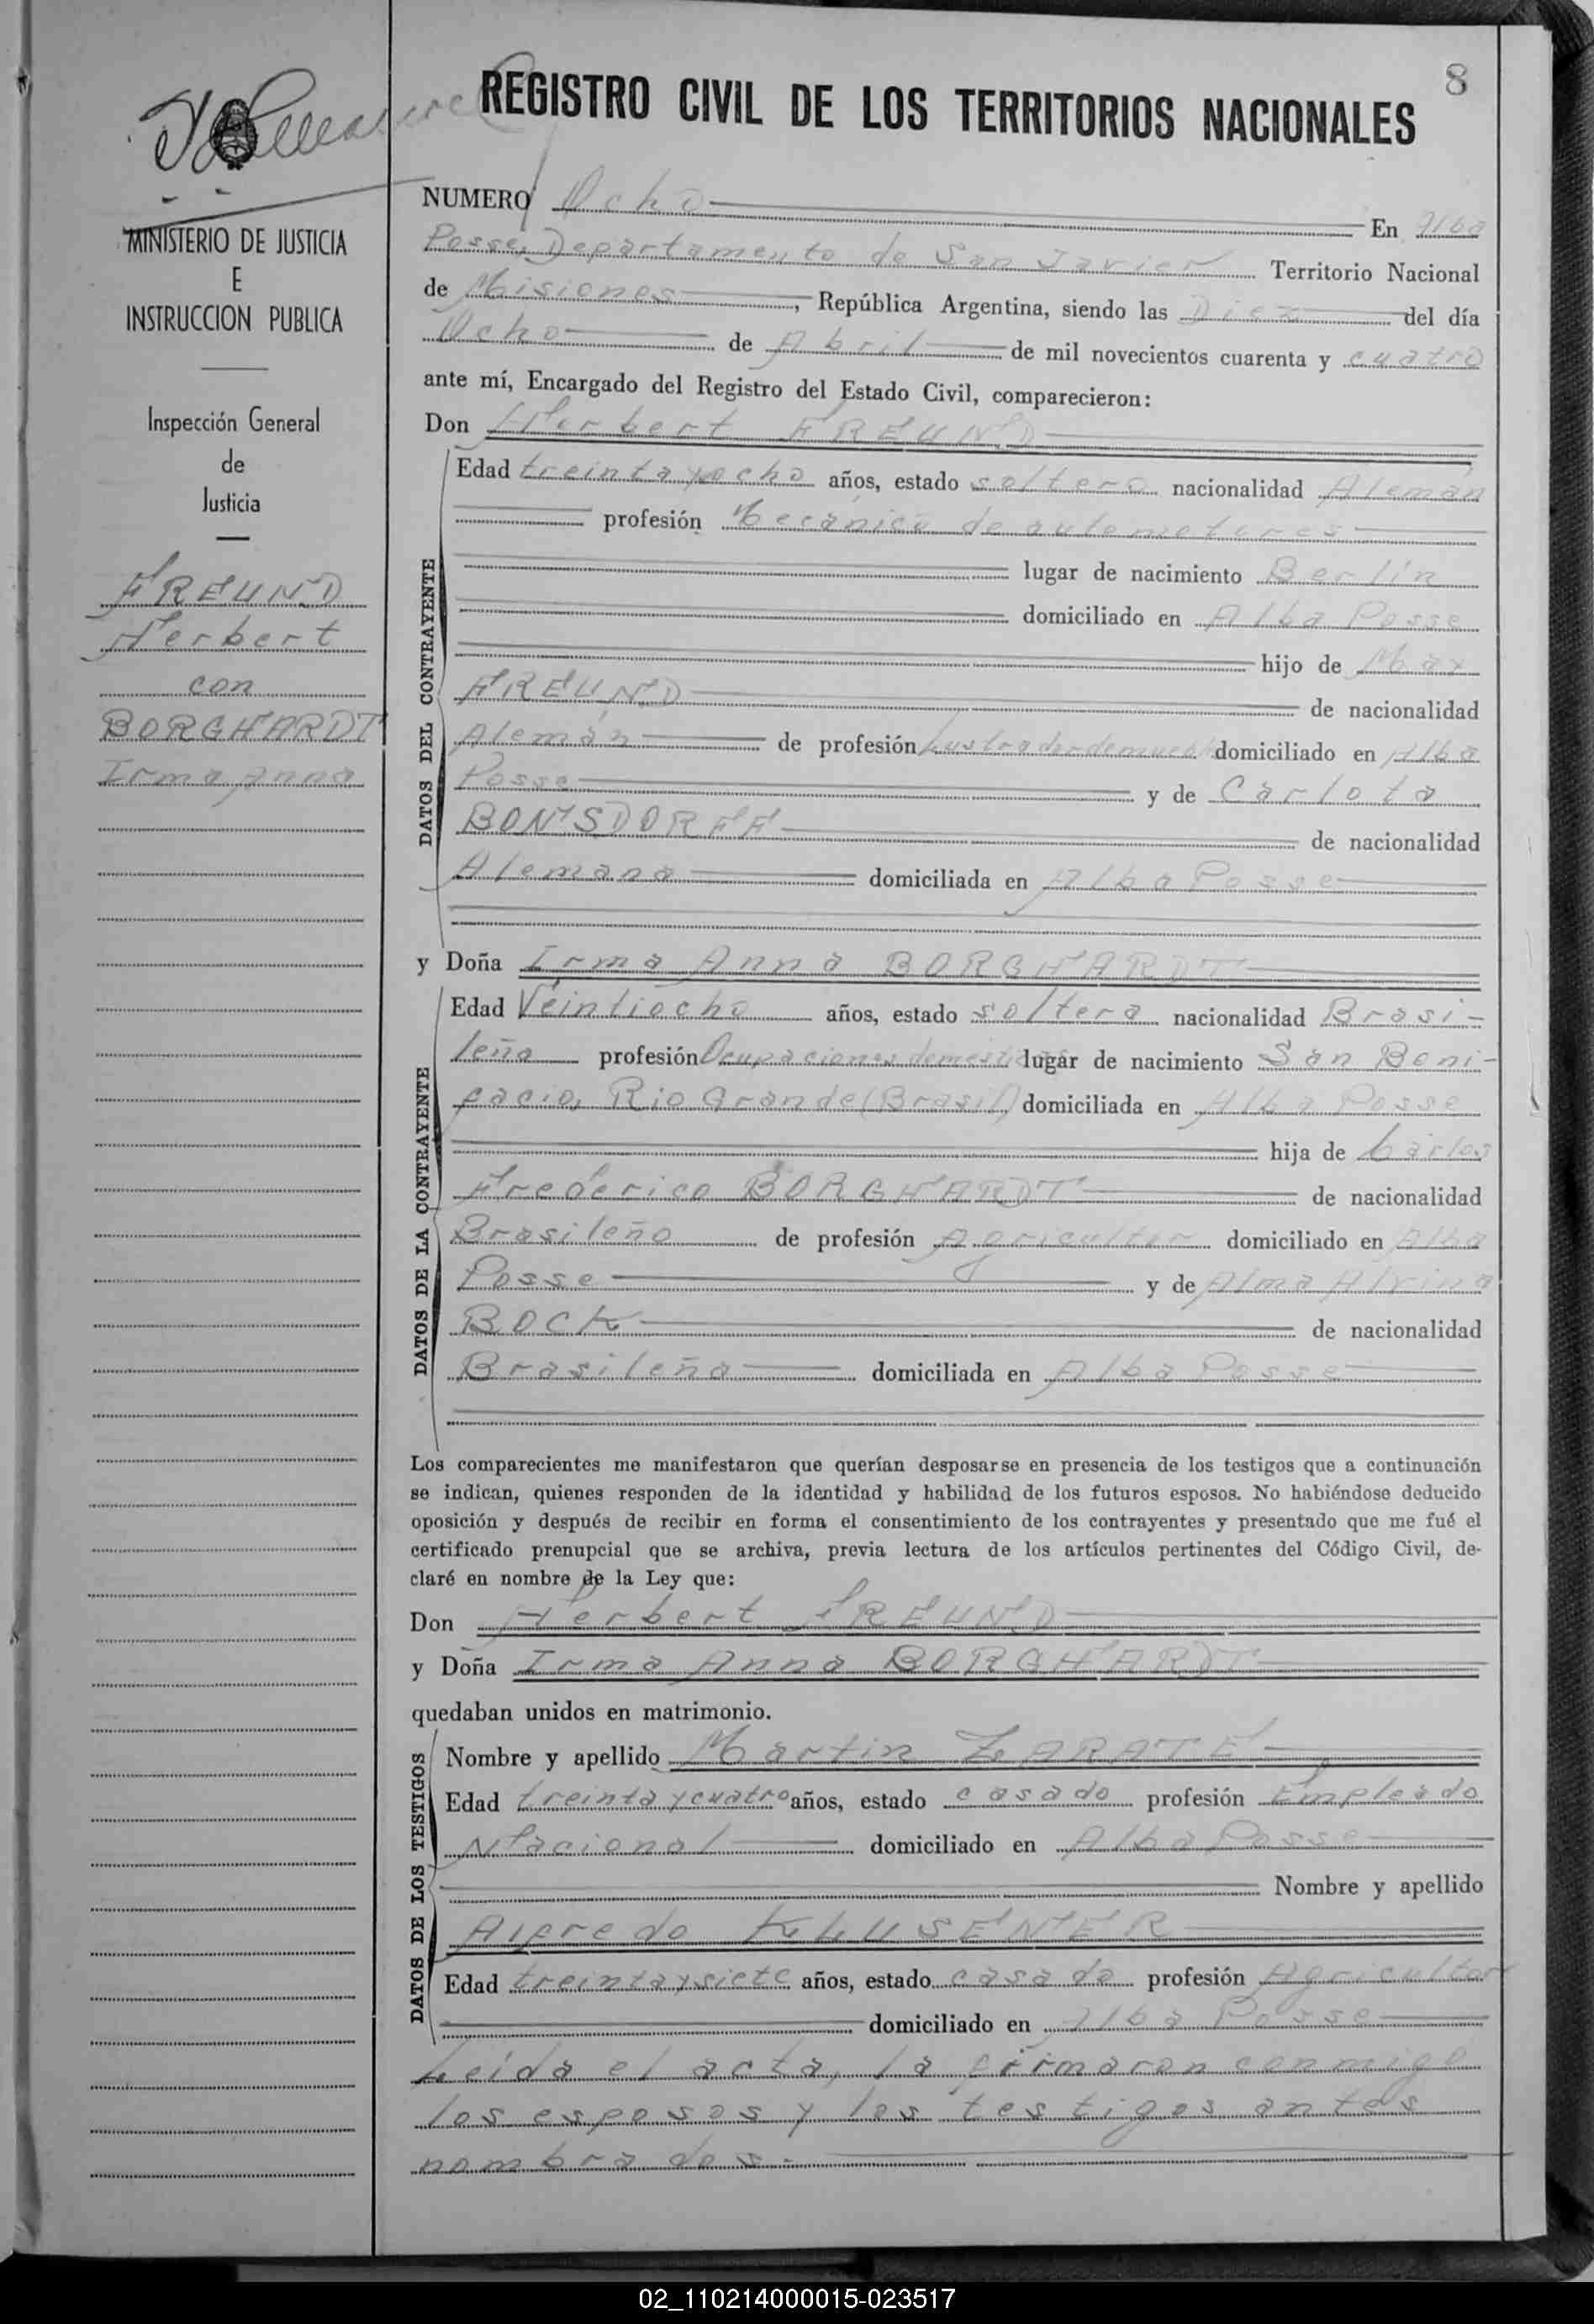 8
REGISTRO CIVIL DE LOS TERRITORIOS NACIONALES
MINISTERIO DE JUSTICIA
E
INSTRUCCION PUBLICA
Inspección General
de
Justicia
FREUND
Herbert
con
BORGHARDT
Irma Anna
NUMERO Ocho En Alba
Posse, Departamento de San Javier Territorio Nacional
de Misiones, República Argentina, siendo las Diez del día
Ocho de Abril de mil novecientos cuarenta y cuatro
ante mí, Encargado del Registro del Estado Civil, comparecieron:
Don Herbert FREUND
DATOS DEL CONTRAYENTE
Edad treinta y ocho años, estado soltero nacionalidad Alemán
profesión Mecánico de automotores
lugar de nacimiento Berlín
domiciliado en Alba Posse
hijo de Max
FREUND de nacionalidad
Alemán de profesión Lustrador de muebl domiciliado en Alba
Posse y de Carlota
BONSDORFF de nacionalidad
Alemana domiciliada en Alba Posse
y Doña Irma Anna BORGHARDT
DATOS DE LA CONTRAYENTE
Edad Veintiocho años, estado soltera nacionalidad Brasi-
leña profesión Ocupaciones domésticas lugar de nacimiento San Boni-
facio, Rio Grande (Brasil) domiciliada en Alba Posse
hija de Carlos
Frederico BORGHARDT de nacionalidad
Brasileño de profesión Agricultor domiciliado en Alba
Posse y de Alma Alvina
BOCK de nacionalidad
Brasileña domiciliada en Alba Posse
Los comparecientes me manifestaron que querían desposarse en presencia de los testigos que a continuación
se indican, quienes responden de la identidad y habilidad de los futuros esposos. No habiéndose deducido
oposición y después de recibir en forma el consentimiento de los contrayentes y presentado que me fué el
certificado prenupcial que se archiva, previa lectura de los artículos pertinentes del Código Civil, de-
claré en nombre de la Ley que:
Don Herbert FREUND
y Doña Irma Anna BORGHARDT
quedaban unidos en matrimonio.
DATOS DE LOS TESTIGOS
Nombre y apellido Martin ZARATE
Edad treinta y cuatro años, estado casado profesión Empleado
Nacional domiciliado en Alba Posse
Nombre y apellido
Alfredo KLUSENER
Edad treinta y siete años, estado casado profesión Agricultor
domiciliado en Alba Posse
Leída el acta, la firmaron conmigo
los esposos y los testigos antes
nombrados.-
02_110214000015-023517